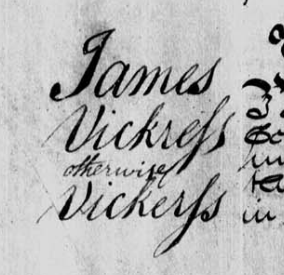 James
Vickreſs
otherwise
Vickerſs